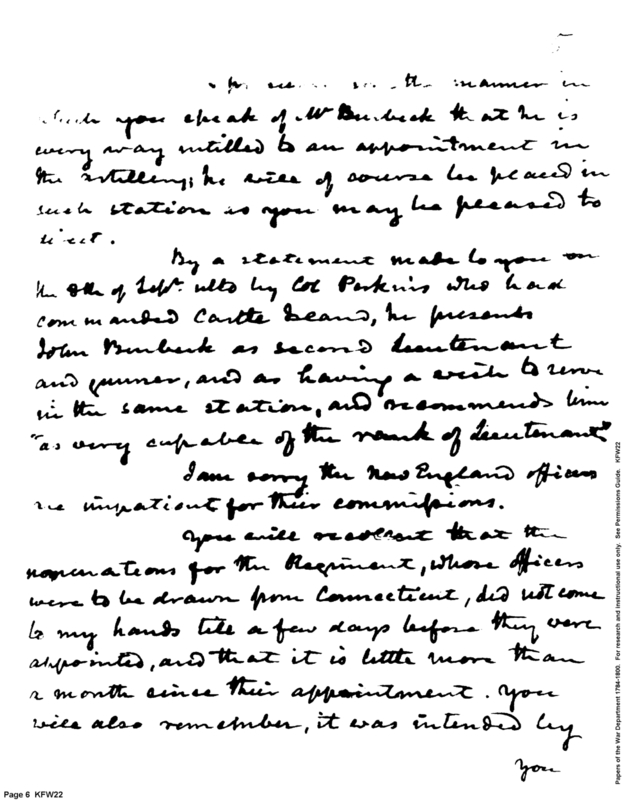 the manner in
which you speak of Mr Burbeck that he is
every way intitled to an appointment in
the Artillery; he will of course be placed in
such station as you may be pleased to
direct.
By a statement made to you on
the 8th of Sept. ulto by Col Perkins who had
commanded Castle Island, he presents
John Burbeck as second Lieutenant
and gunner, and as having a wish to serve
in the same station, and recommends him
"as very capable of the rank of Lieutenant"
I am sorry the New England officers
are impatient for their commissions.
You will recollect that the
nominations for the Regiment, whose officers
were to be drawn from Connecticut, did not come
to my hands till a few days before they were
appointed, and that it is little more than
a month since their appointment. You
will also remember, it was intended by
you
Page 6 KFW22
Papers of the War Department 1784-1800. For research and instructional use only. See Permissions Guide. KFW22